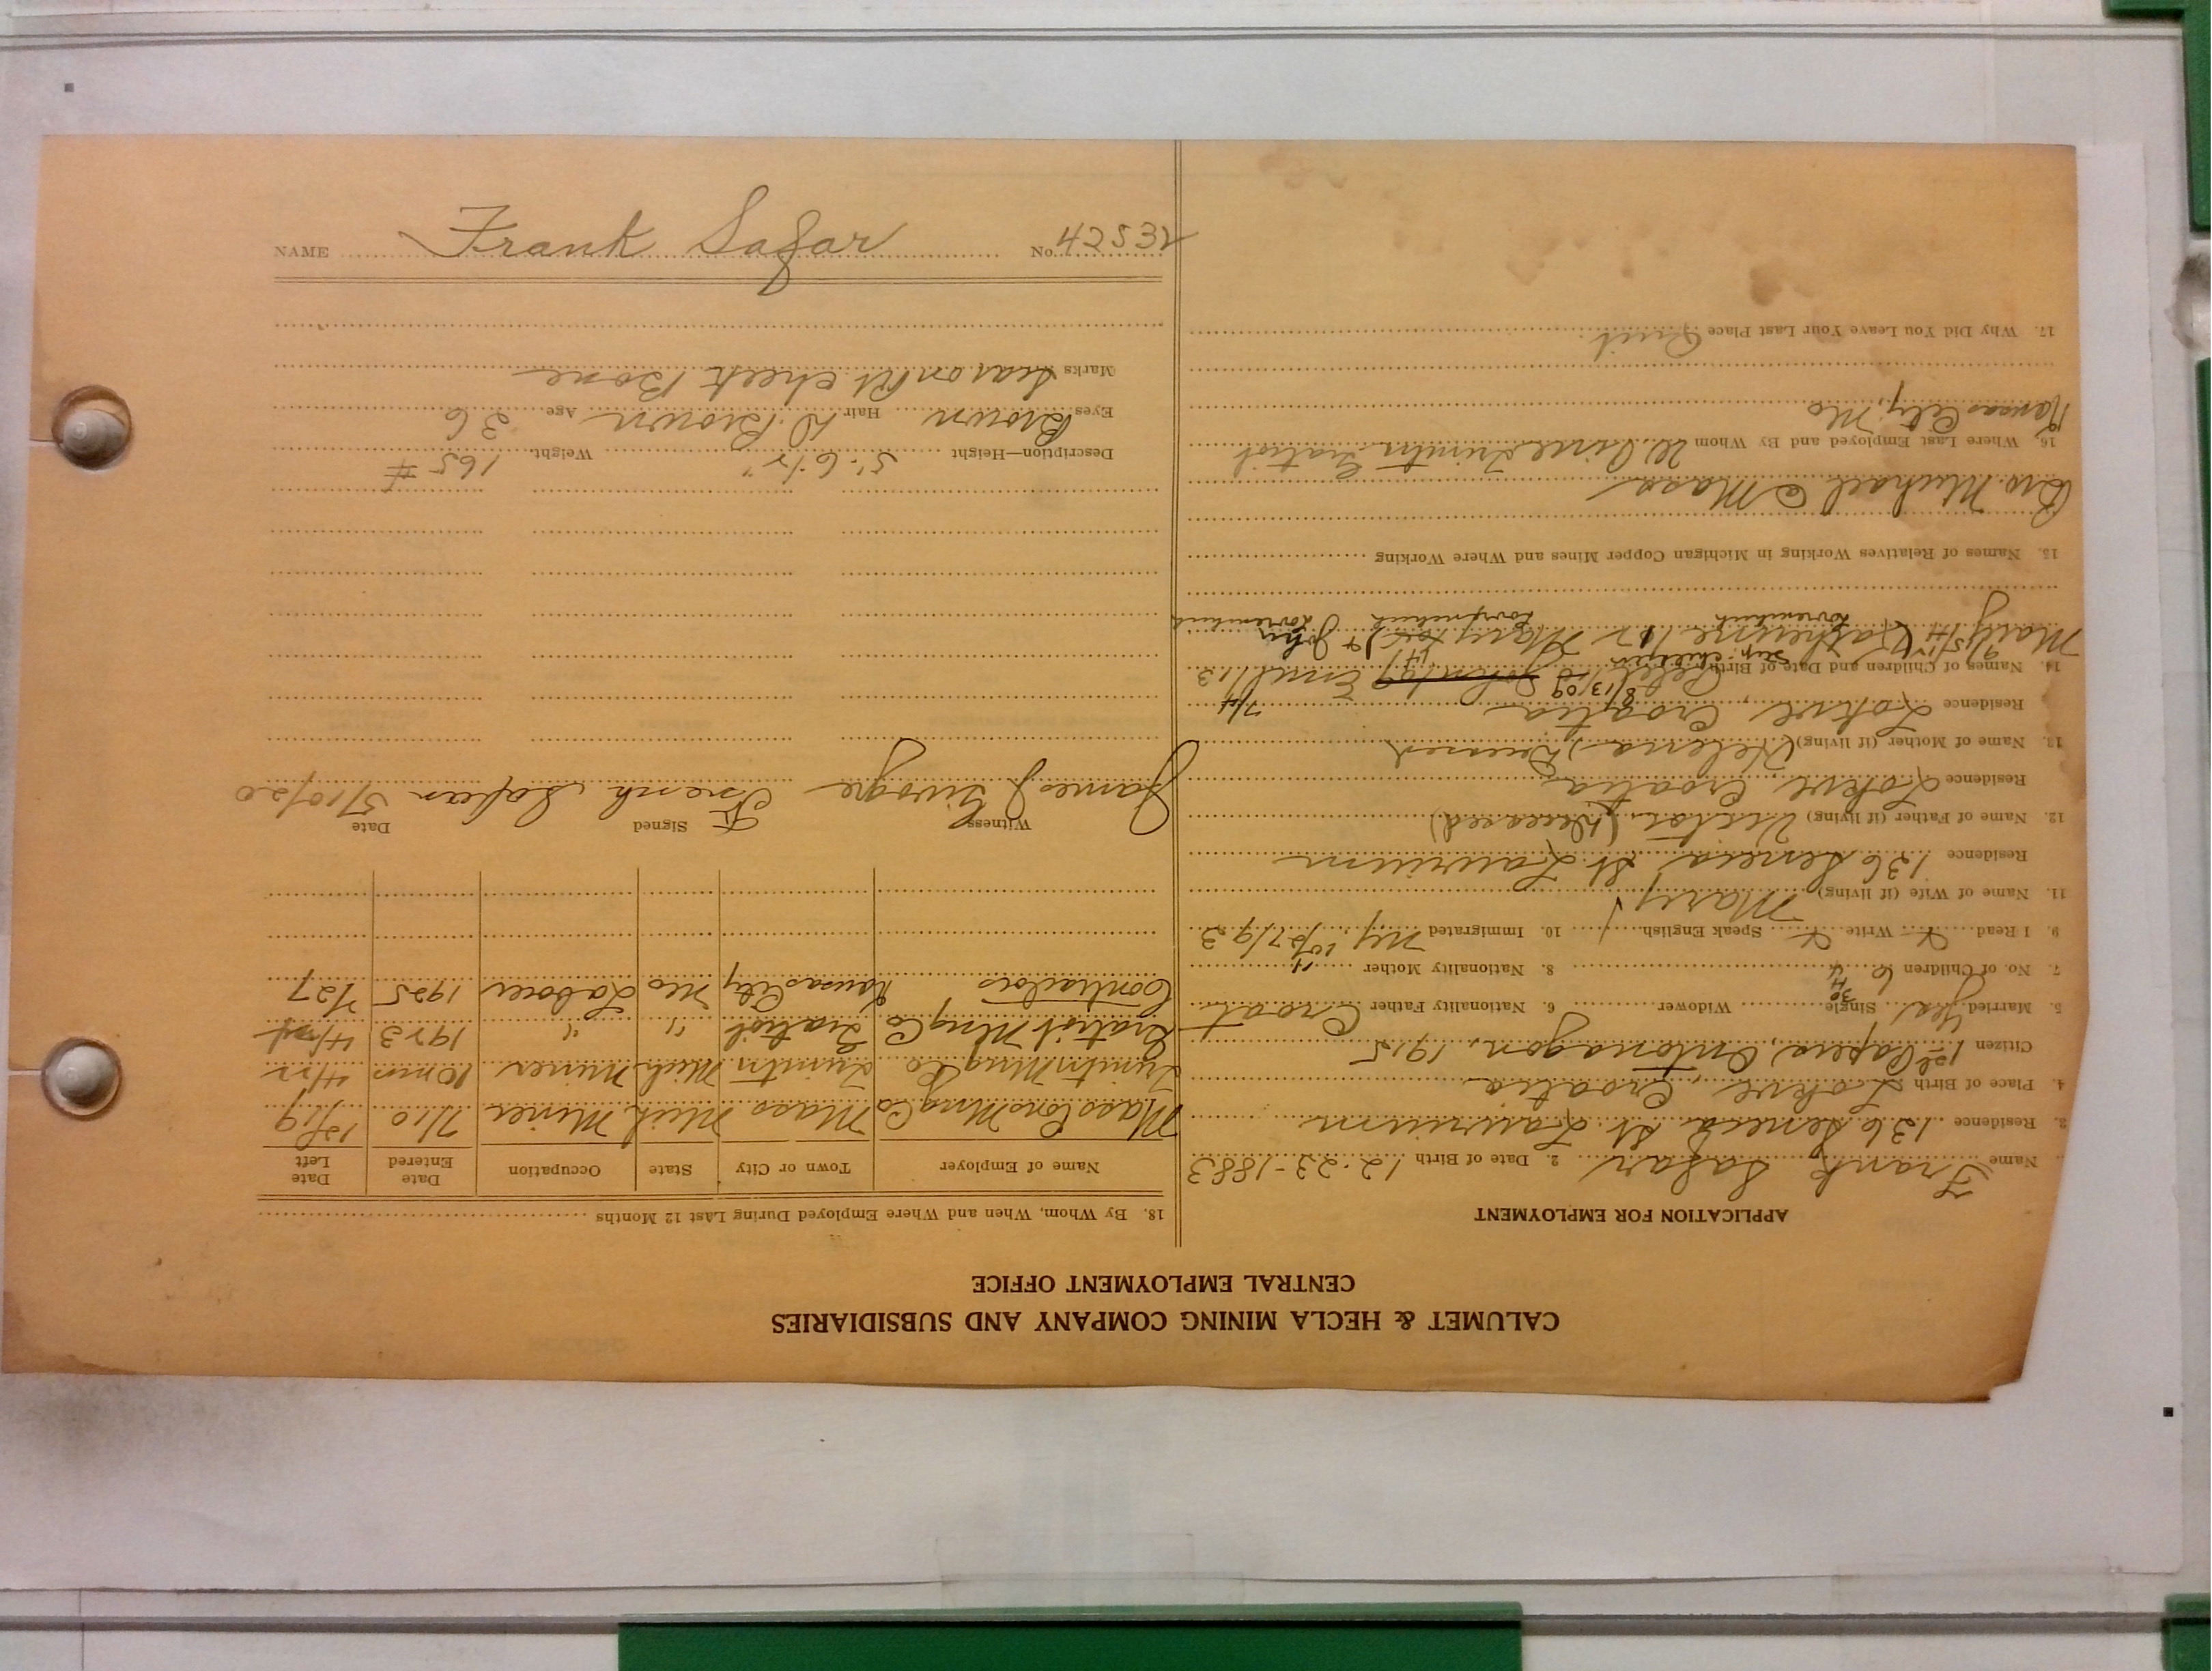 CALUMET & HECLA MINING COMPANY AND SUBSIDIARIES
CENTRAL EMPLOYMENT OFFICE
APPLICATION FOR EMPLOYMENT
Name Frank Safar 2. Date of Birth 12-23-1883
2. Residence 136 Seneca St. Laurium
4. Place of Birth Lokve, Croatia
Citizen 1st Papers, Ontonagon, 1915
5. Married Yes Single Widower 6. Nationality Father Croat
7. No. of Children 6 8. Nationality Mother "
9. I Read Write Speak English 10. Immigrated NY
11. Name of Wife (if living) Mary
Residence 136 Seneca St. Laurium
12. Name of Father (if living) Victor (Deceased)
Residence Lokve, Croatia
13. Name of Mother (if living) (Helena) Deceased
Residence Lokve, Croatia
14. Names of Children and Date of Birth 8/13/09 Emil/13
Mary Catherine Mary John
15. Names of Relatives Working in Michigan Copper Mines and Where Working
Bro. Michael @ Mass
16. Where Last Employed and By Whom
Kansas City, Mo
17. Why Did You Leave Your Last Place Quit.
18. By Whom, When and Where Employed During Last 12 Months
Name of Employer Town or City State Occupation Date Entered Date Left
Mass Cons Mng Co Mass Mich Miner 7/10
Mng Co Mich Miner
Gratiot Mng Co Gratiot " " 1923
Contractors Kansas City Mo Laborer 1925 7/27
Witness Signed Date
James J. Frank Safar 5/10/20
Description—Height 5'-6 1/2" Weight 165 #
Eyes Brown Hair D. Brown Age 36
Marks Scar on Rt cheek Bone
NAME Frank Safar No. 42532